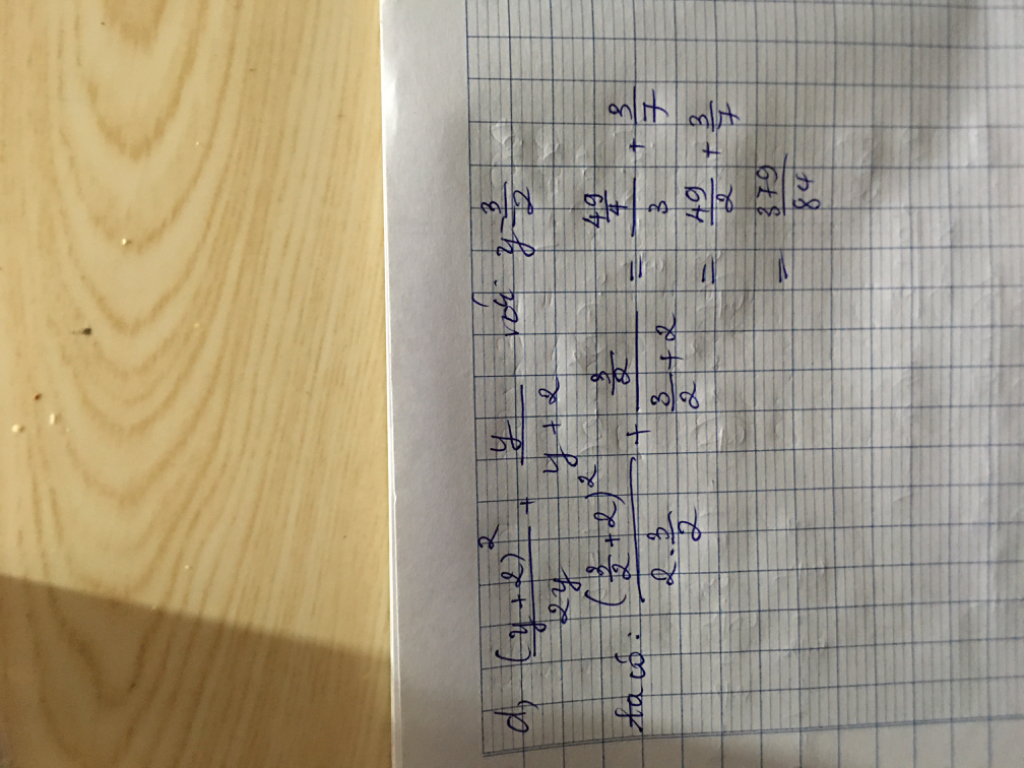 d, (y+2)²/2y + y/(y+2) với y = 3/2
Ta có: (3/2+2)²/(2·3/2) + (3/2)/(3/2+2) = (49/4)/3 + 3/7
= 49/2 + 3/7
= 379/84